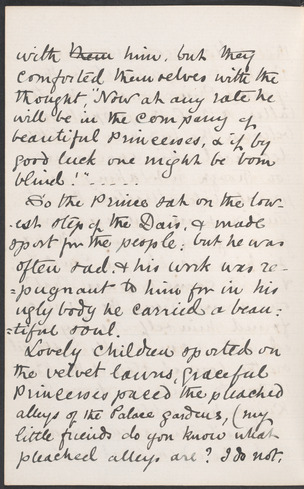 with them him. but they
comforted themselves with the
thought, "Now at any rate he
will be in the company of
beautiful Princesses, & if by
good luck one might be born
blind!" .....
So the Prince sat on the low-
-est step of the Dais, & made
sport for the people: but he was
often sad, & his work was re-
=pugnant to him for in his
ugly body he carried a beau:
=tiful soul.
Lovely Children sported on
the velvet lawns, graceful
Princesses paced the pleached
alleys of the Palace gardens, (my
little friends do you know what
pleached alleys are? I do not.